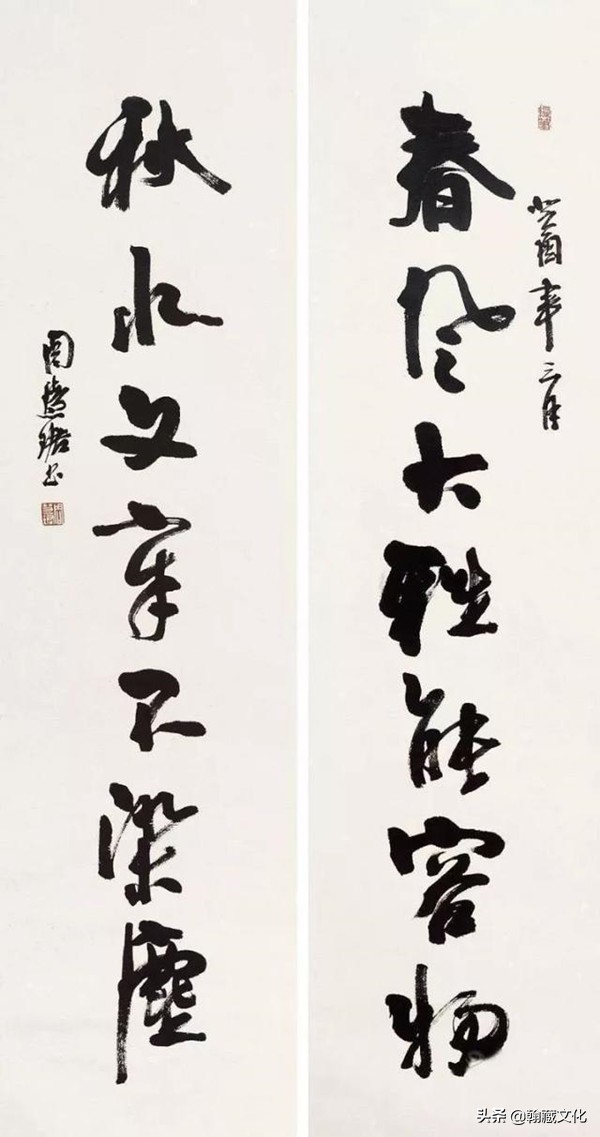 癸酉年三月
春風大雅能容物
秋水文章不染塵
周慧珺书
头条 @翰藏文化